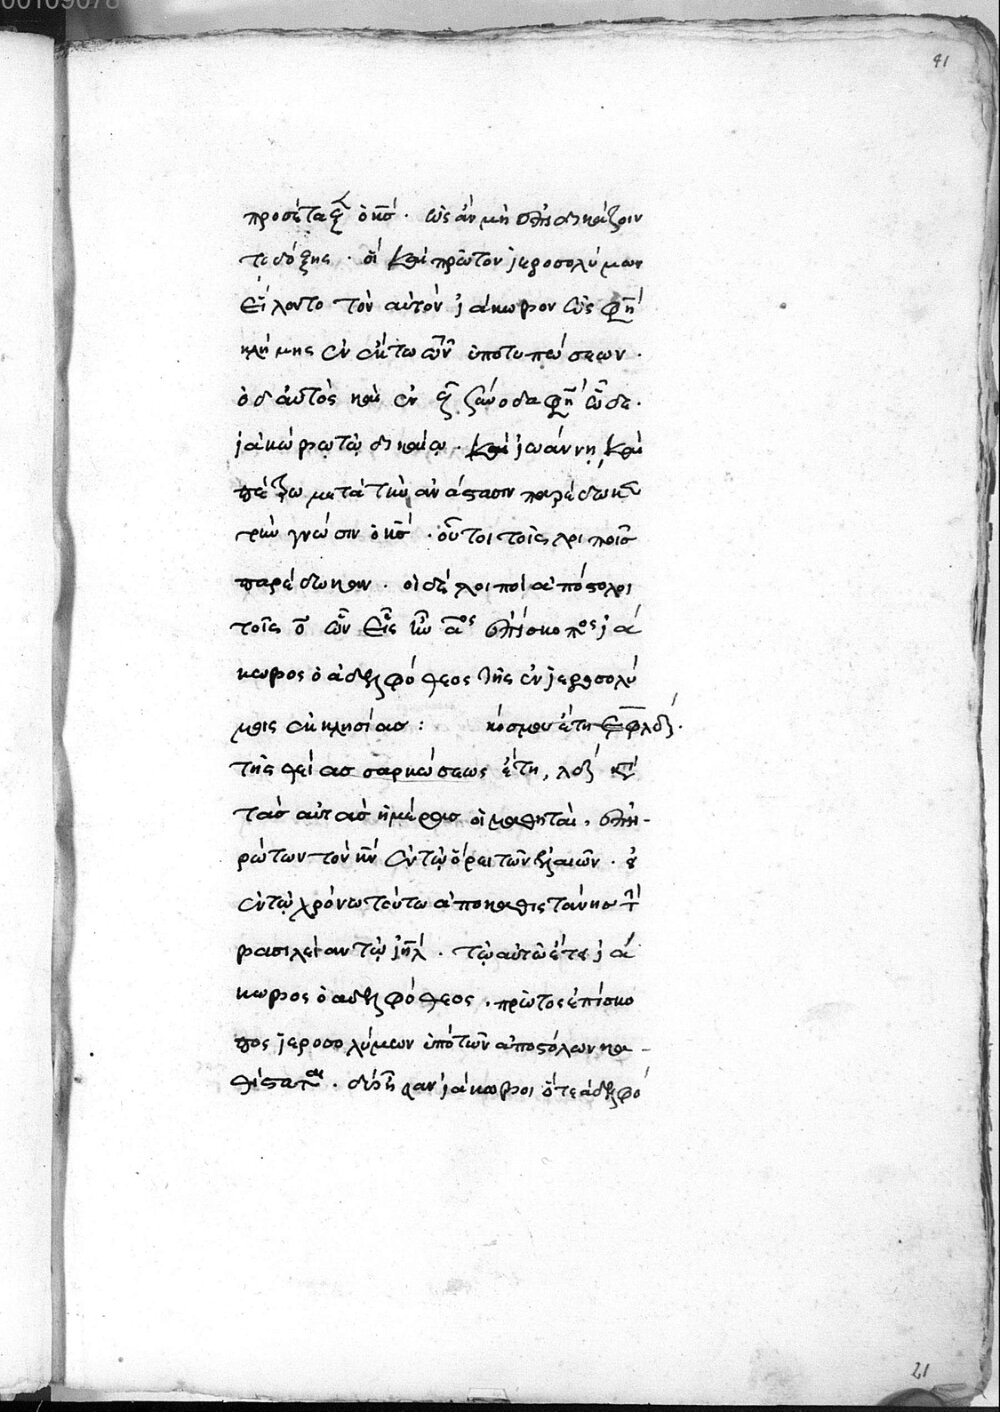 41
προσέταξεν ὁ κς · ὡς ἂν μὴ ἐπιδικάζοιν
το δόξης · οἳ καὶ πρῶτον ἱεροσολύμων
εἵλοντο τὸν αὐτὸν ἰάκωβον ὡς φη
κλήμης ἐν ἕκτω τῶν ὑποτυπώσεων ·
ὁ δ αὐτὸς καὶ ἐν ζ φη ὧδε ·
ἰακώβῳ τῷ δικαίῳ · καὶ ἰωάννῃ, καὶ
πέτρω μετὰ τὴν ἀνάστασιν παρέδωκε
τὴν γνῶσιν ὁ κς · οὗτοι τοῖς λοιποῖς
παρέδωκαν · οἱ δὲ λοιποὶ ἀπόστολοι
τοῖς ο ὧν εἷς ἦν ἐπίσκοπος ἰά
κωβος ὁ ἀδελφόθεος τῆς ἐν ἱεροσολύ
μοις ἐκκλησίας : κόσμου ἔτη εφλδ ·
τῆς θείας σαρκώσεως ἔτη, λδ κτ
τὰς αὐτὰς ἡμέρας οἱ μαθηταὶ, ἐπη-
ρώτων τὸν κν ἐν τῷ ὄρει τῶν ἐλαιῶν · εἰ
ἐν τῷ χρόνω τούτω ἀποκαθιστάνεις τ
βασιλείαν τῷ ιηλ · τῷ αὐτῶ ἔτει ἰά
κωβος ὁ ἀδελφόθεος · πρῶτος ἐπίσκο
πος ἱεροσολύμων ὑπὸ τῶν ἀποστόλων κα-
θίσταται · δύο ἦσαν ἰάκωβοι ὅ τε ἀδελφό
21